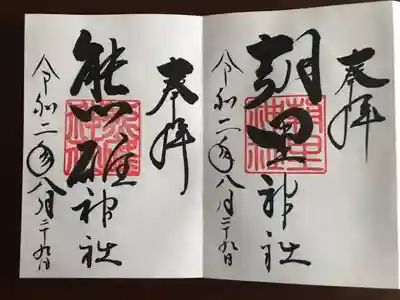 奉拝
朝里神社
令和二年八月二十九日
奉拝
熊碓神社
令和二年八月二十九日